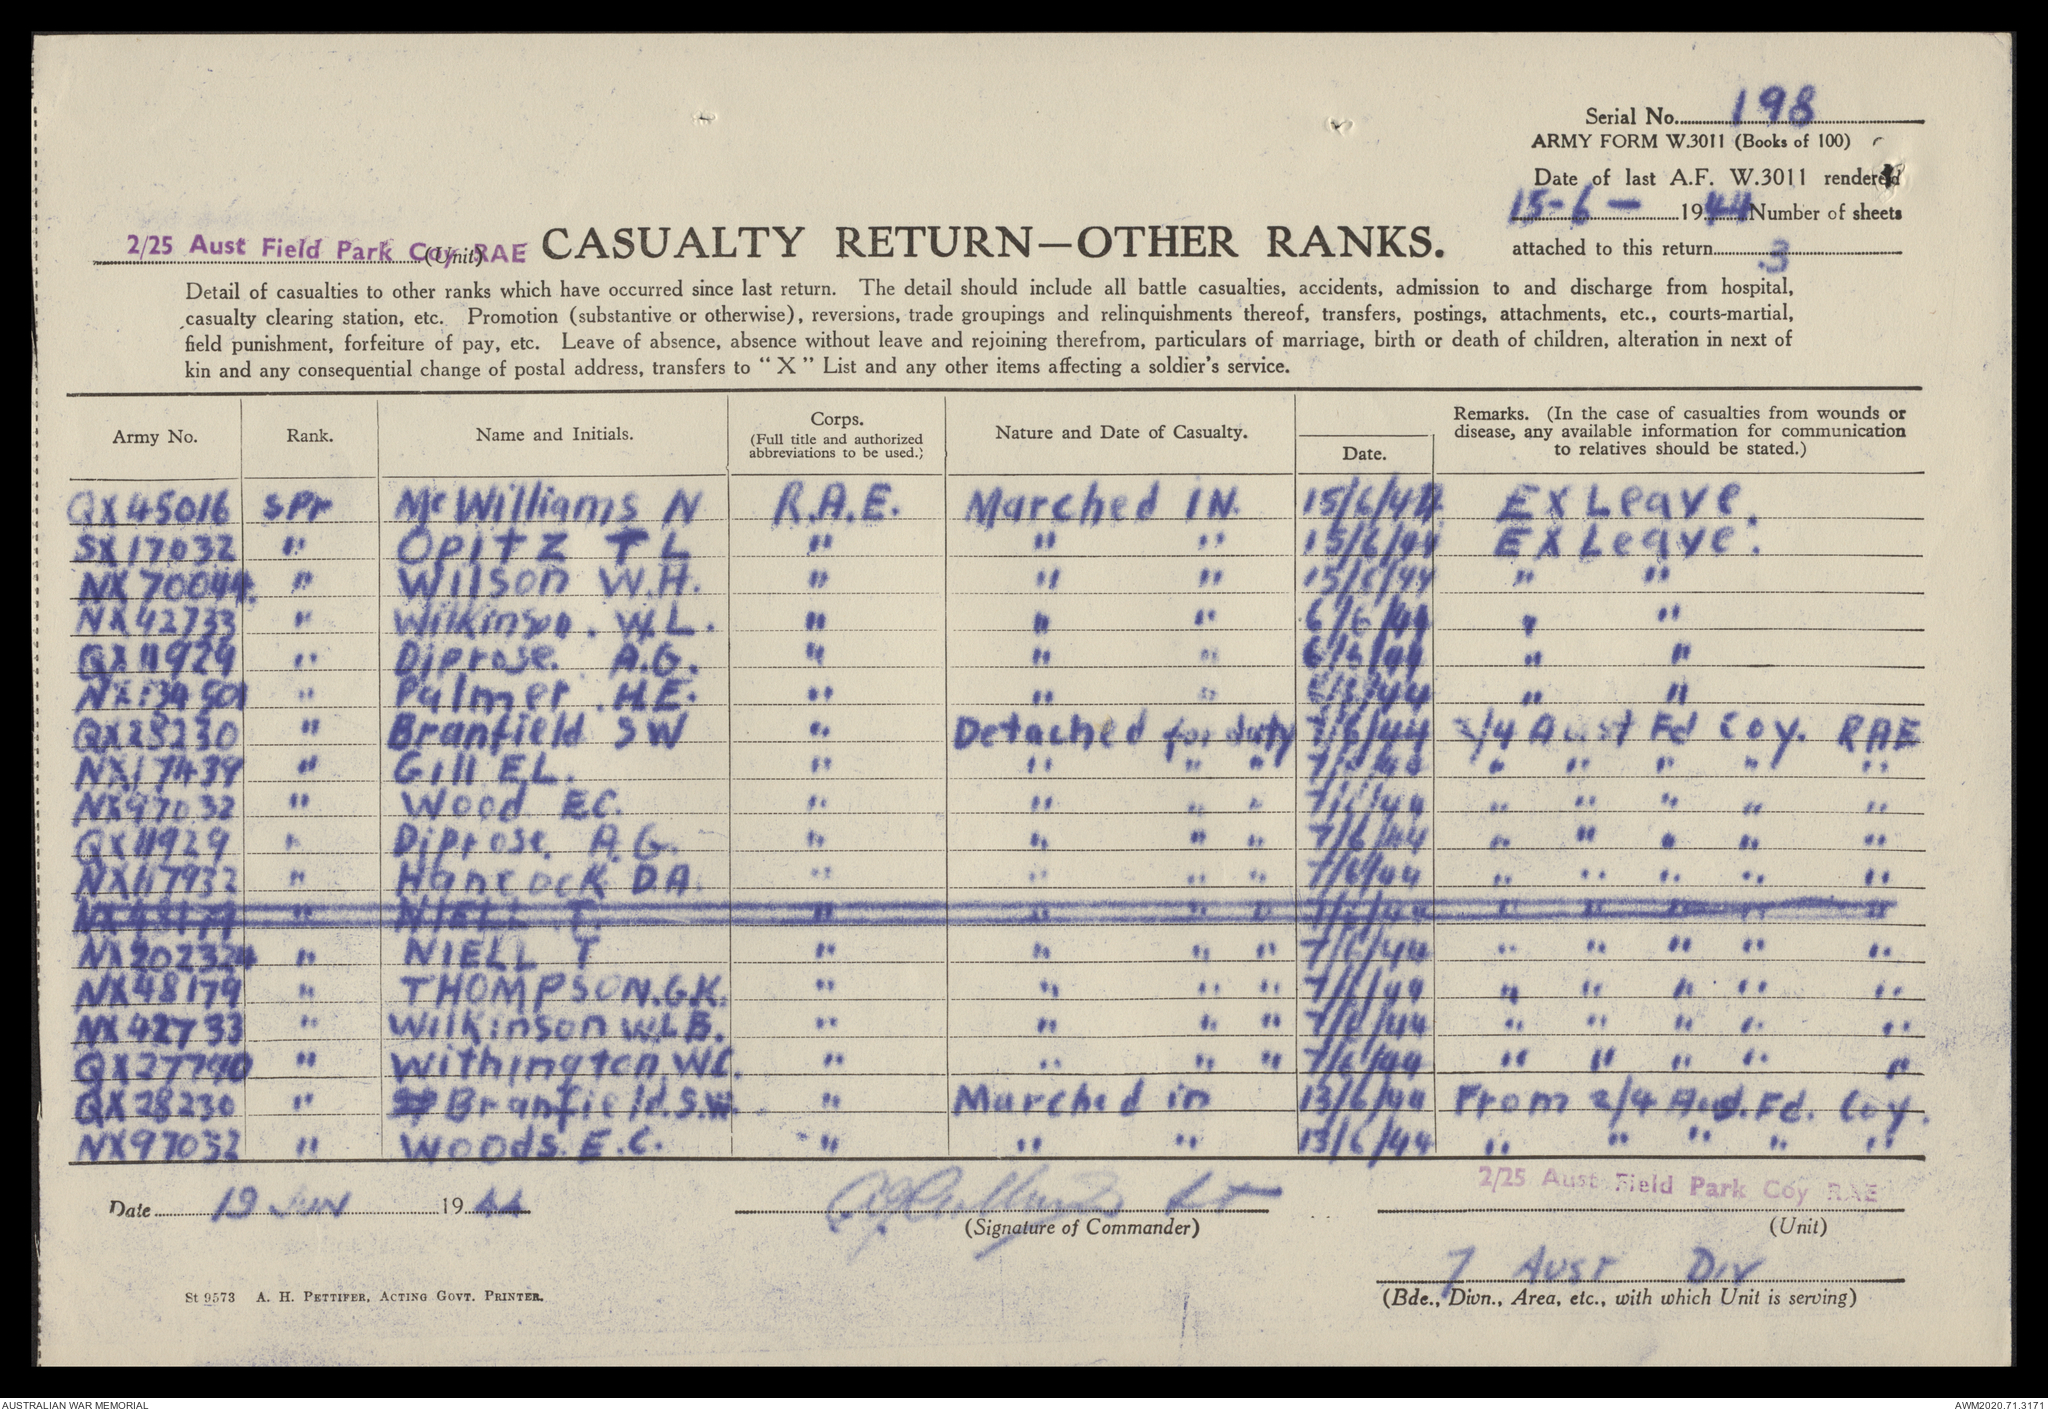 Serial No. 198
ARMY FORM W.3011 (Books of 100)
Date of last A.F. W.3011 rendered
15-6- 1944 Number of sheets
attached to this return 3
2/25 Aust Field Park Coy RAE (Unit) CASUALTY RETURN—OTHER RANKS.
Detail of casualties to other ranks which have occurred since last return. The detail should include all battle casualties, accidents, admission to and discharge from hospital,
casualty clearing station, etc. Promotion (substantive or otherwise), reversions, trade groupings and relinquishments thereof, transfers, postings, attachments, etc., courts-martial,
field punishment, forfeiture of pay, etc. Leave of absence, absence without leave and rejoining therefrom, particulars of marriage, birth or death of children, alteration in next of
kin and any consequential change of postal address, transfers to "X" List and any other items affecting a soldier's service.
Army No. Rank. Name and Initials. Corps. (Full title and authorized abbreviations to be used.) Nature and Date of Casualty. Date. Remarks. (In the case of casualties from wounds or disease, any available information for communication to relatives should be stated.)
QX45016 SPr McWilliams N R.A.E. Marched IN. 15/6/44 EX Leave.
SX17032 " Opitz T L " " " 15/6/44 EX Leave.
NX70044. " Wilson W.H. " " " 15/6/44 " "
NX42733 " Wilkinson. W.L. " " " 6/6/44 " "
QX11929 " Diprose. A.G. " " " 6/6/44 " "
NX134501 " Palmer .H.E. " " " /44 " "
QX28230 " Branfield S W " Detached for duty 7/6/44 2/4 Aust Fd Coy. RAE
NX17439 " Gill E.L. " " " " 7/6/44 " " " " "
NX97032 " Wood E.C. " " " " 7/6/44 " " " " "
QX11929 " Diprose. A.G. " " " " 7/6/44 " " " " "
NX117932 " Hancock D.A. " " " " 7/6/44 " " " " "
NX48179 " NIELL T. " " " " 7/6/44 " " " " "
NX202324 " NIELL T " " " " 7/6/44 " " " " "
NX48179 " THOMPSON.G.K. " " " " 7/6/44 " " " " "
NX42733 " Wilkinson W.L.B. " " " " 7/6/44 " " " " "
QX27790 " Withington W.C. " " " " 7/6/44 " " " " "
QX28230 " Branfield.S.W. " Marched in 13/6/44 From 2/4 Aust.Fd. Coy.
NX97032 " Woods. E.C. " " " 13/6/44 " " " " "
Date 19 JUN 1944 Lt 2/25 Aust Field Park Coy RAE
(Signature of Commander) (Unit)
7 Aust Div
St 9573 A. H. PETTIFER, ACTING GOVT. PRINTER. (Bde., Divn., Area, etc., with which Unit is serving)
AUSTRALIAN WAR MEMORIAL AWM2020.71.3171